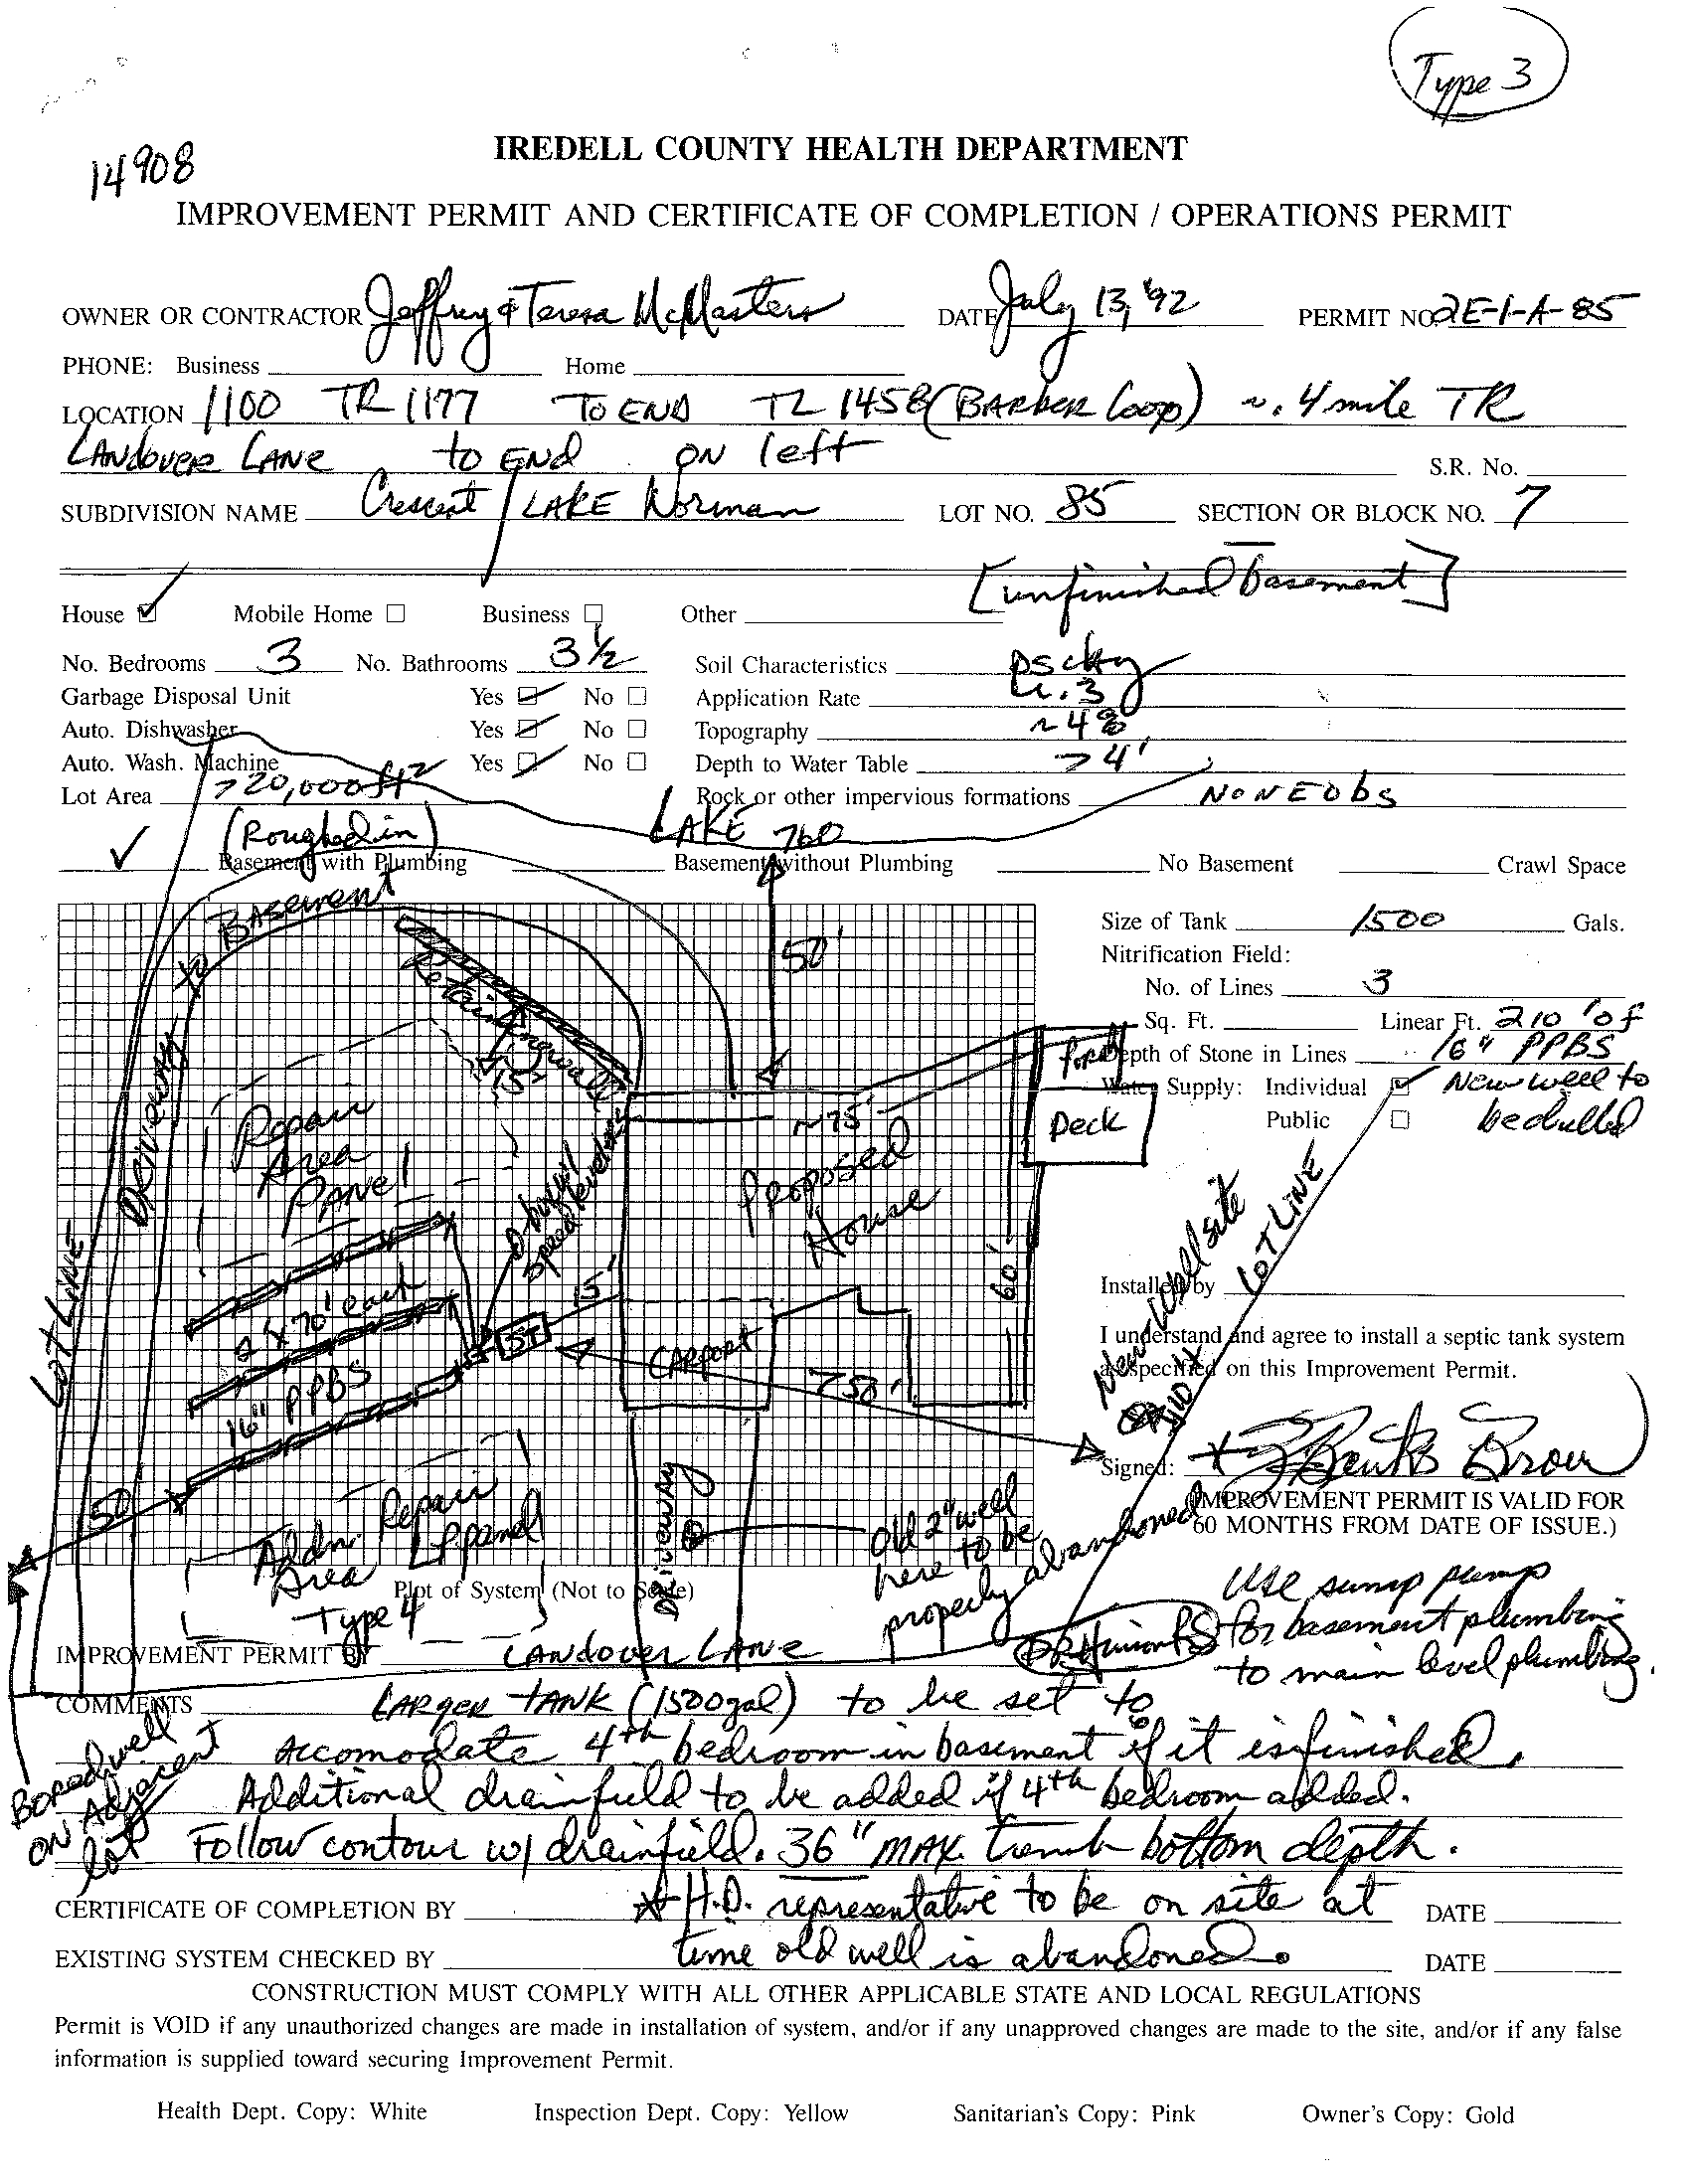 Type 3
14908
IREDELL COUNTY HEALTH DEPARTMENT
IMPROVEMENT PERMIT AND CERTIFICATE OF COMPLETION / OPERATIONS PERMIT
OWNER OR CONTRACTOR Jeffrey & Teresa McMasters DATE July 13, '92 PERMIT NO. 2E-1-A-85
PHONE: Business Home
LOCATION 1100 TR 1177 TO END TL 1458 (BARBER Loop) ~.4 mile TR
LANDOVER LANE to END ON left S.R. No.
SUBDIVISION NAME Crescent / LAKE Norman LOT NO. 85 SECTION OR BLOCK NO. 7
[unfinished basement]
House Mobile Home Business Other
No. Bedrooms 3 No. Bathrooms 3 1/2 Soil Characteristics
Garbage Disposal Unit Yes No Application Rate .3
Auto. Dishwasher Yes No Topography ~4%
Auto. Wash. Machine Yes No Depth to Water Table >4'
Lot Area >20,000 ft2 Rock or other impervious formations NONE Obs
(Roughed in) LAKE 760
Basement with Plumbing Basement without Plumbing No Basement Crawl Space
Basement
Size of Tank 1500 Gals.
50'
Nitrification Field:
Retaining wall
No. of Lines 3
Sq. Ft. Linear Ft. 210' of
Depth of Stone in Lines 16" PPBS
15'
Water Supply: Individual New well to
Public be drilled
Porch
Deck
~75'
Driveway
Repair
Area
Panel
Proposed
House
D-box w/
speed levelers
New Well site
LOT LINE
LOT LINE
60'
15'
Installed by
2 x 70' each
ST
16" PPBS
CARPORT
>50'
I understand and agree to install a septic tank system
as specified on this Improvement Permit.
Signed:
50'
Addn. Repair
Area LPpanel
Type 4
Driveway
Old 2" well
here to be
properly abandoned
(IMPROVEMENT PERMIT IS VALID FOR
60 MONTHS FROM DATE OF ISSUE.)
Plot of System (Not to Scale)
Use sump pump
for basement plumbing
to main level plumbing.
IMPROVEMENT PERMIT BY
LANDOVER LANE
COMMENTS LARGER TANK (1500gal) to be set to
accomodate 4th bedroom in basement if it is finished.
Additional drainfield to be added if 4th bedroom added.
Follow contour w/ drainfield. 36" MAX. trench bottom depth.
Bored well
ON Adjacent
lot
CERTIFICATE OF COMPLETION BY * H.D. representative to be on site at DATE
EXISTING SYSTEM CHECKED BY time old well is abandoned. DATE
CONSTRUCTION MUST COMPLY WITH ALL OTHER APPLICABLE STATE AND LOCAL REGULATIONS
Permit is VOID if any unauthorized changes are made in installation of system, and/or if any unapproved changes are made to the site, and/or if any false
information is supplied toward securing Improvement Permit.
Health Dept. Copy: White Inspection Dept. Copy: Yellow Sanitarian's Copy: Pink Owner's Copy: Gold